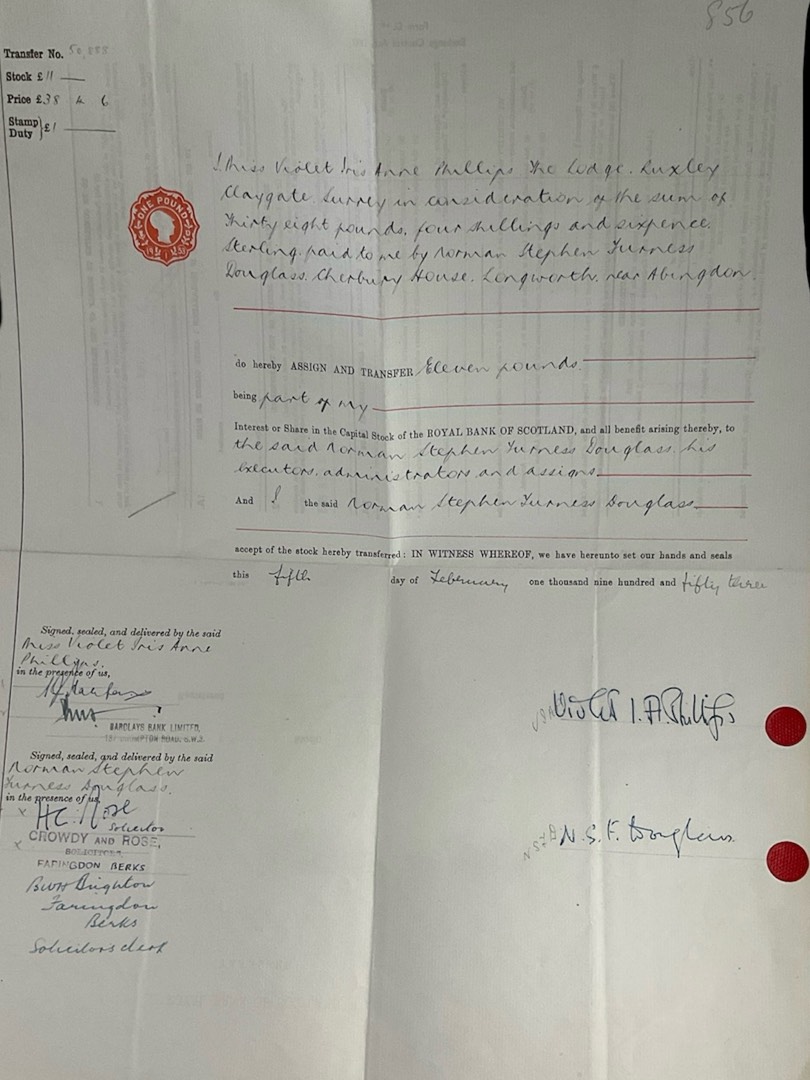 856
Transfer No. 50,888
Stock £11
Price £38 4 6
Stamp Duty} £1
ONE POUND
I Miss Violet Iris Anne Phillips The Lodge. Ruxley
Claygate Surrey in consideration of the sum of
Thirty eight pounds, four shillings and sixpence.
Sterling paid to me by Norman Stephen Furness
Douglass. Cherbury House. Longworth. near Abingdon
do hereby ASSIGN AND TRANSFER Eleven pounds.
being part of my
Interest or Share in the Capital Stock of the ROYAL BANK OF SCOTLAND, and all benefit arising thereby, to
the said Norman Stephen Furness Douglass his
executors. administrators and assigns
And I the said Norman Stephen Furness Douglass
accept of the stock hereby transferred: IN WITNESS WHEREOF, we have hereunto set our hands and seals
this fifth day of February one thousand nine hundred and fifty three
Signed, sealed, and delivered by the said
Miss Violet Iris Anne
Phillips.
in the presence of us,
BARCLAYS BANK LIMITED,
S.W.
Violet I. A. Phillips
Signed, sealed, and delivered by the said
Norman Stephen
Furness Douglass.
in the presence of us,
H C Rose
Solicitor
CROWDY AND ROSE,
SOLICITORS,
FARINGDON BERKS
N. S. F. Douglass.
Brighton
Faringdon
Berks
Solicitors clerk